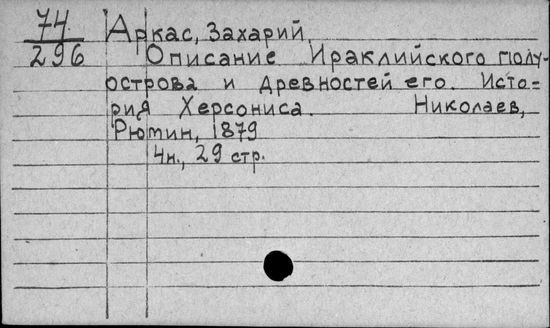 74
296
Аркас, Захарий.
Описание Ираклийского полу-
острова и древностей его. Исто-
рия Херсониса. Николаев,
Рютин, 1879
4н., 29 стр.